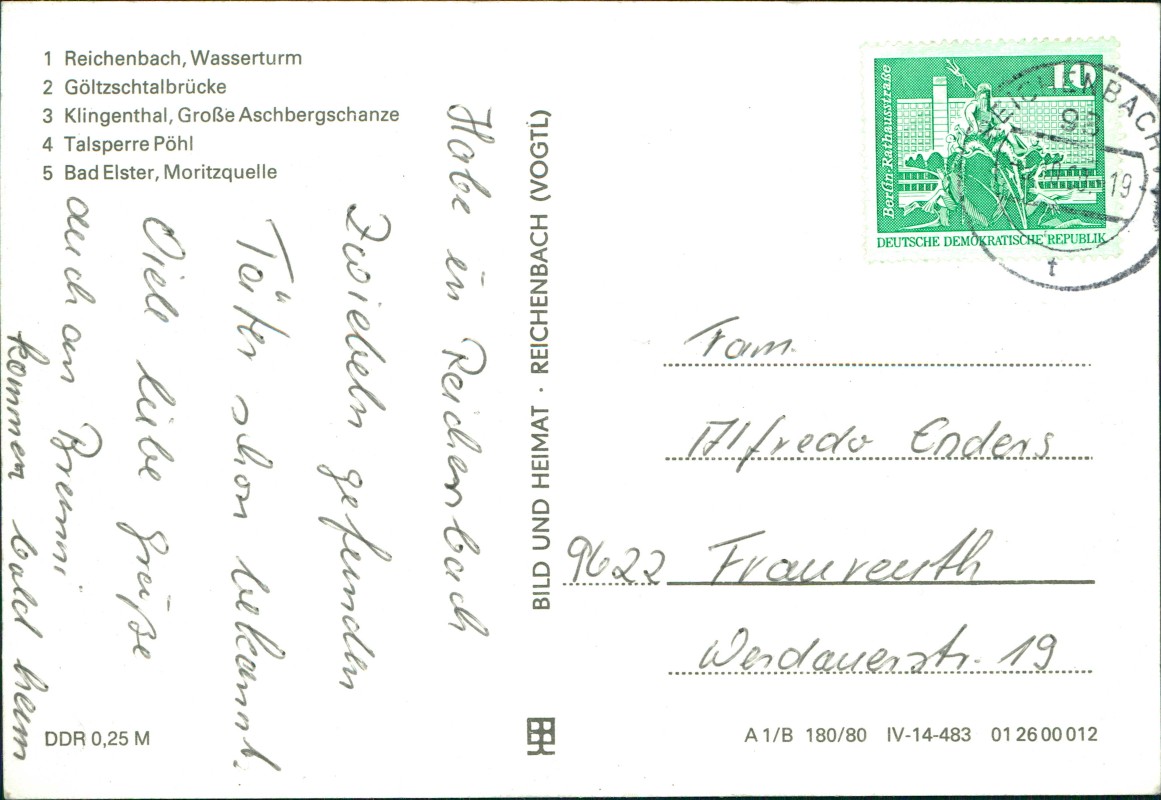 1 Reichenbach, Wasserturm
2 Göltzschtalbrücke
3 Klingenthal, Große Aschbergschanze
4 Talsperre Pöhl
5 Bad Elster, Moritzquelle
Habe in Reichenbach
Zwiebeln gefunden
Täter schon bekannt.
Viele liebe Grüße
auch an Bremni
kommen bald heim
DDR 0,25 M
BILD UND HEIMAT · REICHENBACH (VOGTL)
Berlin-Rathausstraße
10
DEUTSCHE DEMOKRATISCHE REPUBLIK
REICHENBACH
19
t
Fam.
Alfredo Enders
9622 Fraureuth
Werdauerstr. 19
A 1/B 180/80 IV-14-483 01 26 00 012